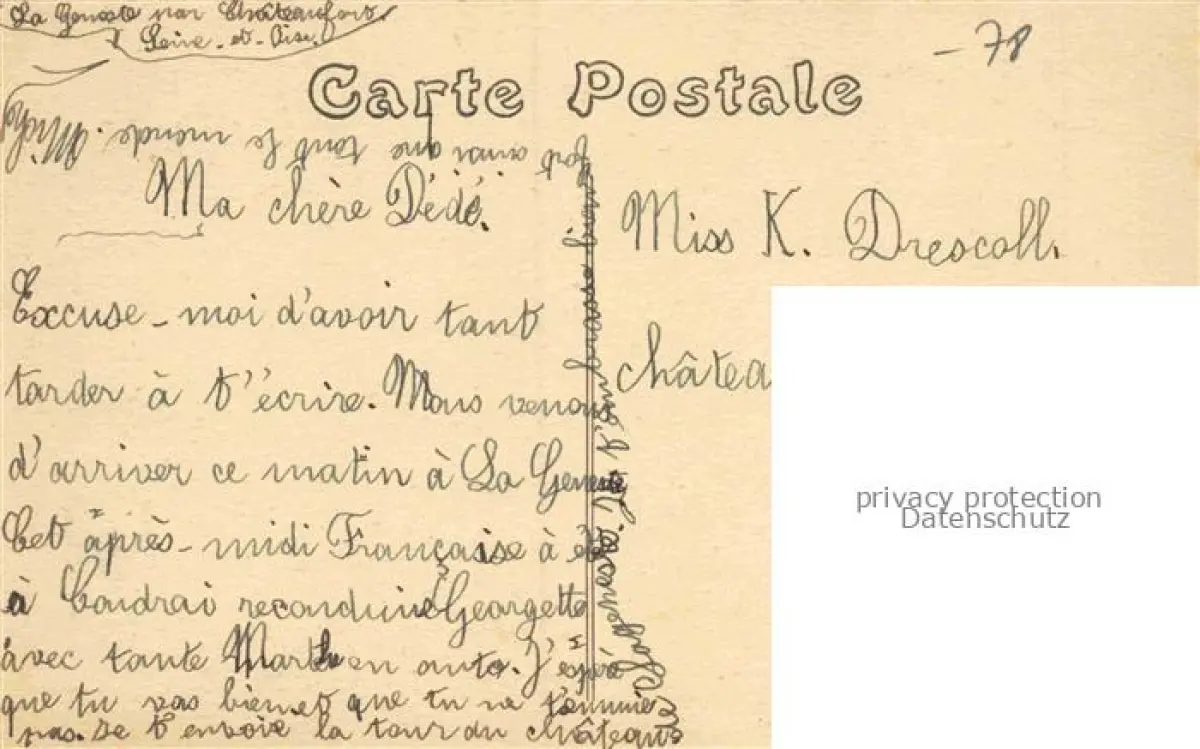 La Geneste par Châteaufort
Seine-et-Oise.
- 78
Carte Postale
Ma chère Dédé.
Excuse-moi d'avoir tant
tarder à t'écrire. Nous venons
d'arriver ce matin à La Geneste
Cet après-midi Française à été
à Coudrai reconduire Georgette
avec tante Marthe en auto. J'espère
que tu vas bien et que tu ne t'ennuie
pas. Je t'envoie la tour du château
ainsi que tout le monde.
Miss K. Drescoll.
châtea
privacy protection
Datenschutz